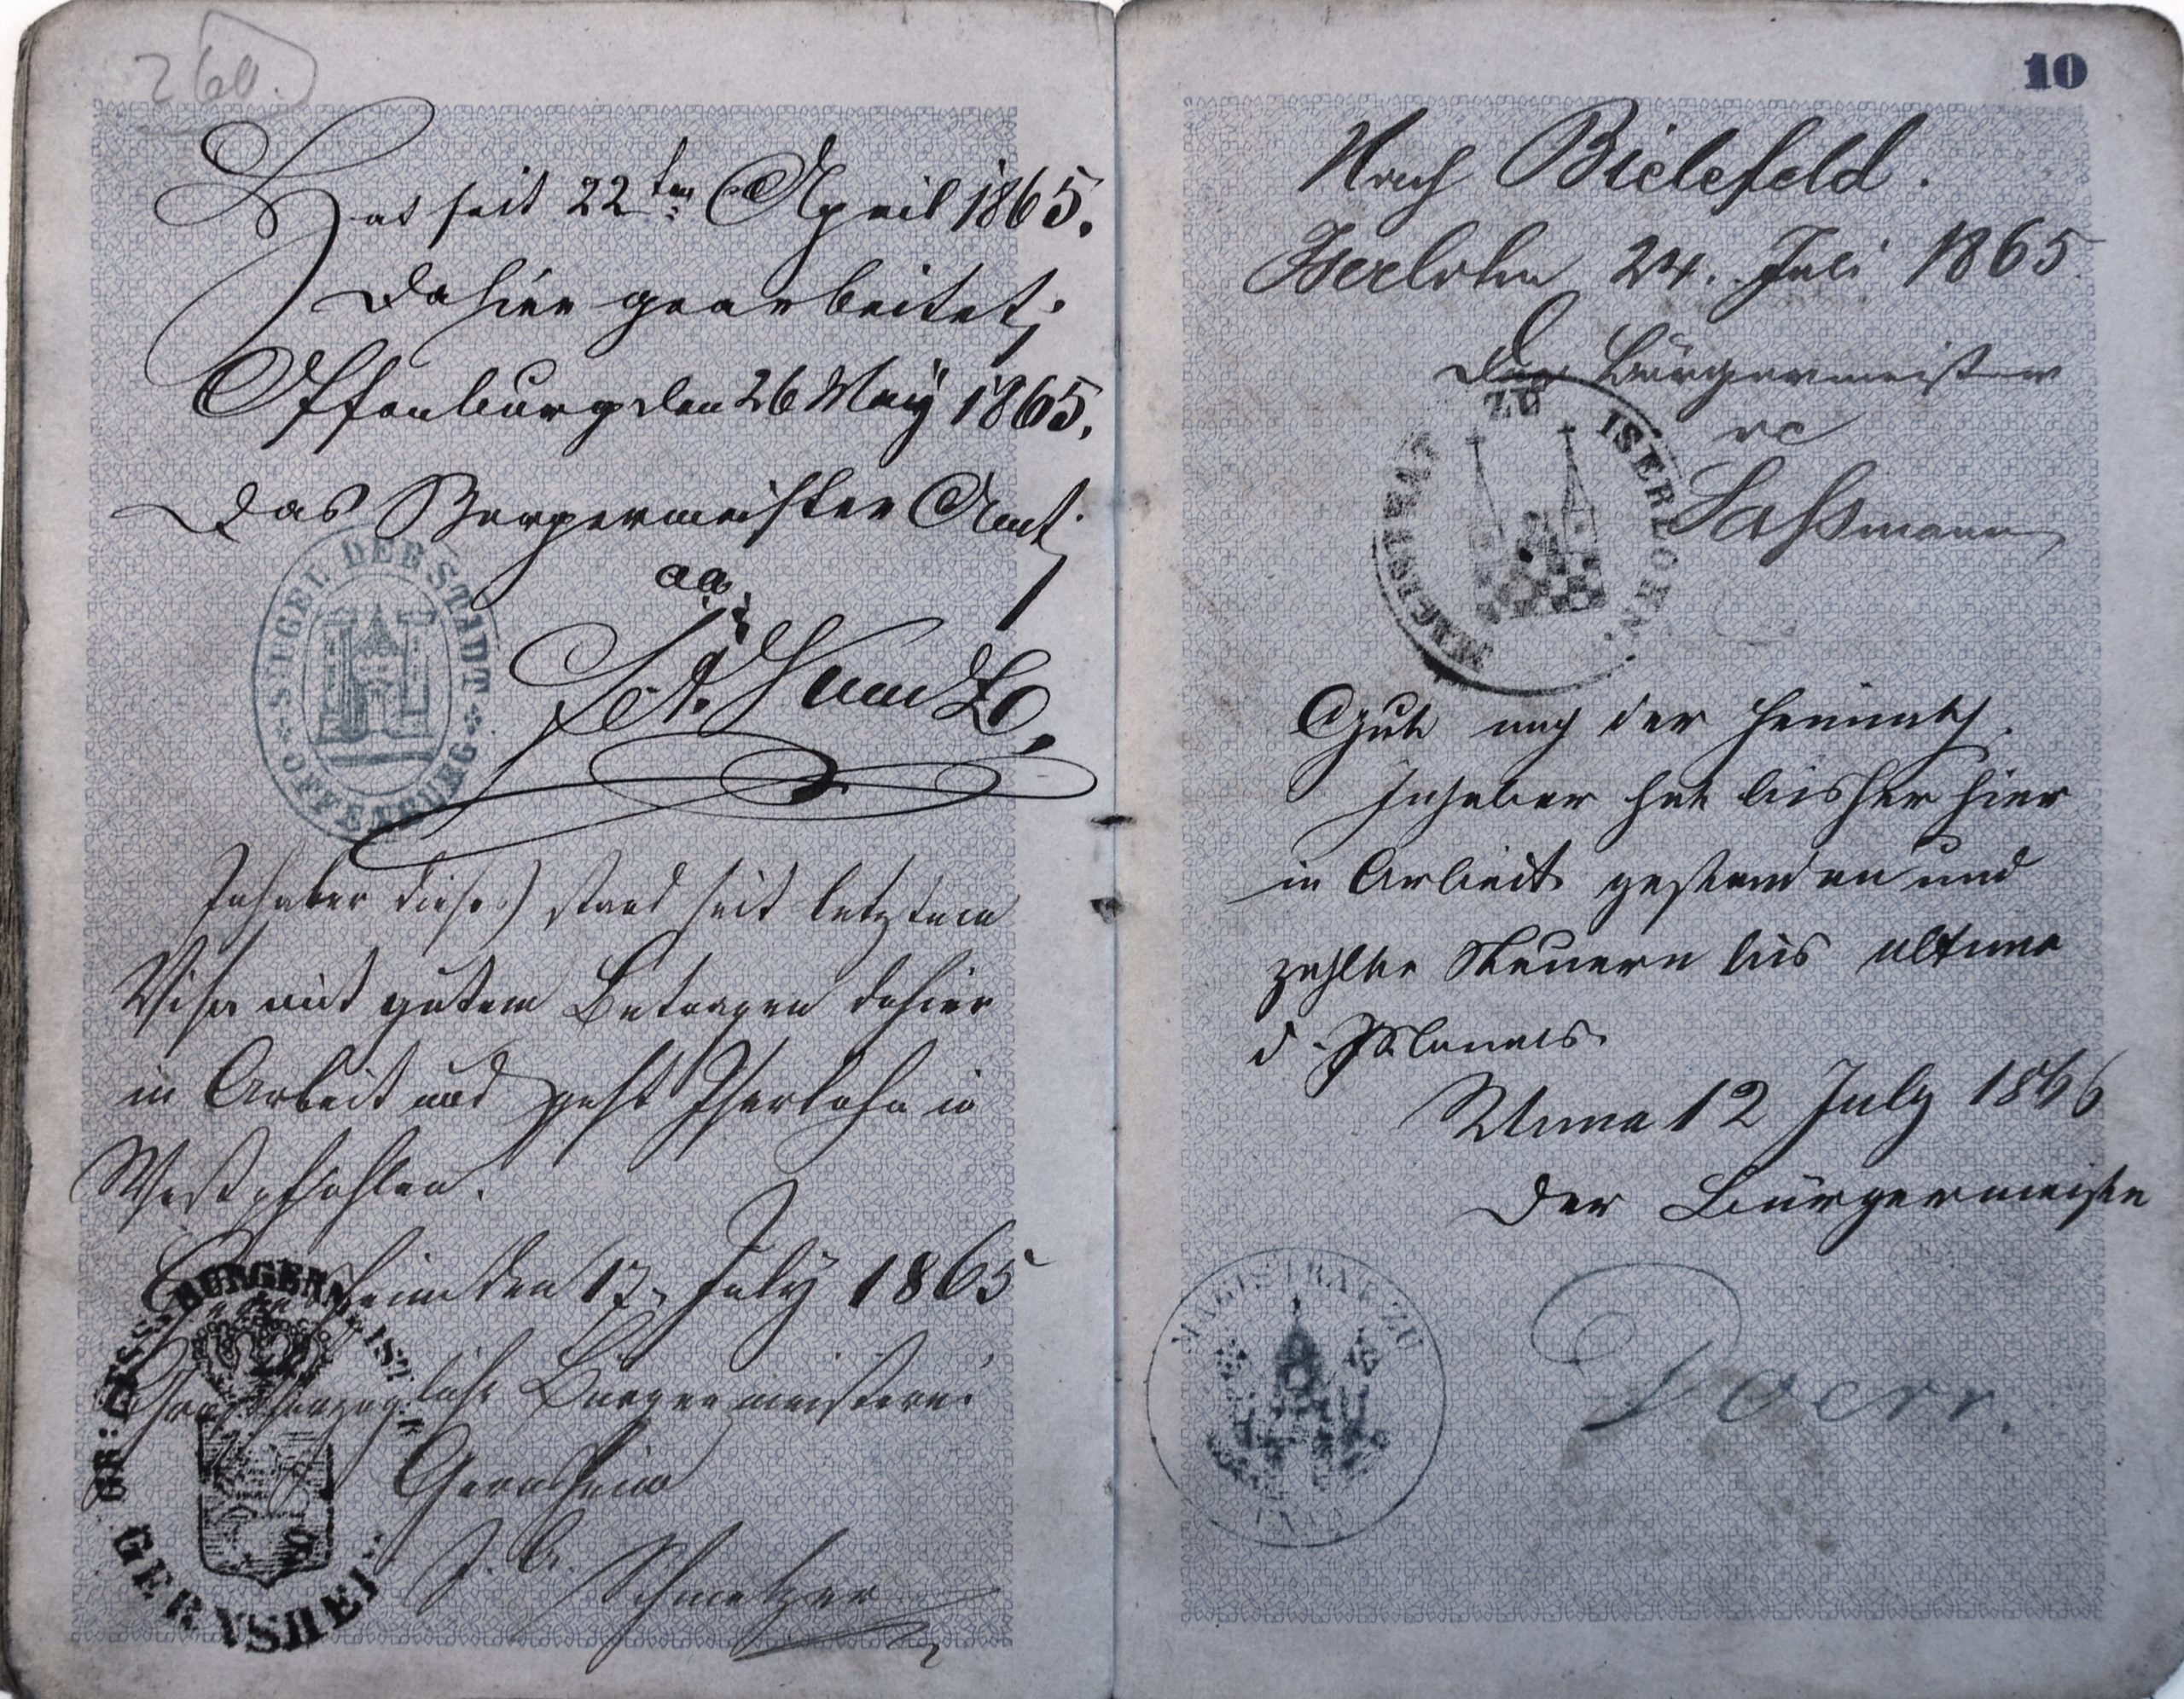 260.
Hat seit 22ten April 1865.
dahier gearbeitet;
Offenburg den 26 May 1865.
Das Bürgermeister Amt
SIEGEL DER STADT
OFFENBURG
Inhaber dieses stand seit letztem
Visa mit gutem Betragen dahier
in Arbeit und geht Iserlohn in
Westpfahlen.
Gernsheim den 17. July 1865
Großherzogliche Bürgermeisterei
Gernsheim
Schmelzer
GR: HESS: BÜRGERMEIST
GERNSHEIM
10
Nach Bielefeld.
Iserlohn 24. Juli 1865.
Der Bürgermeister
Laßmann
MAGISTRAT ZU ISERLOHN.
Gut nach der Heimath.
Inhaber hat bisher hier
in Arbeit gestanden und
zahlte Steuern bis ultimo
d. Monats.
Unna 12 July 1866
Der Bürgermeister
MAGISTRAT ZU
UNNA
Doerr.